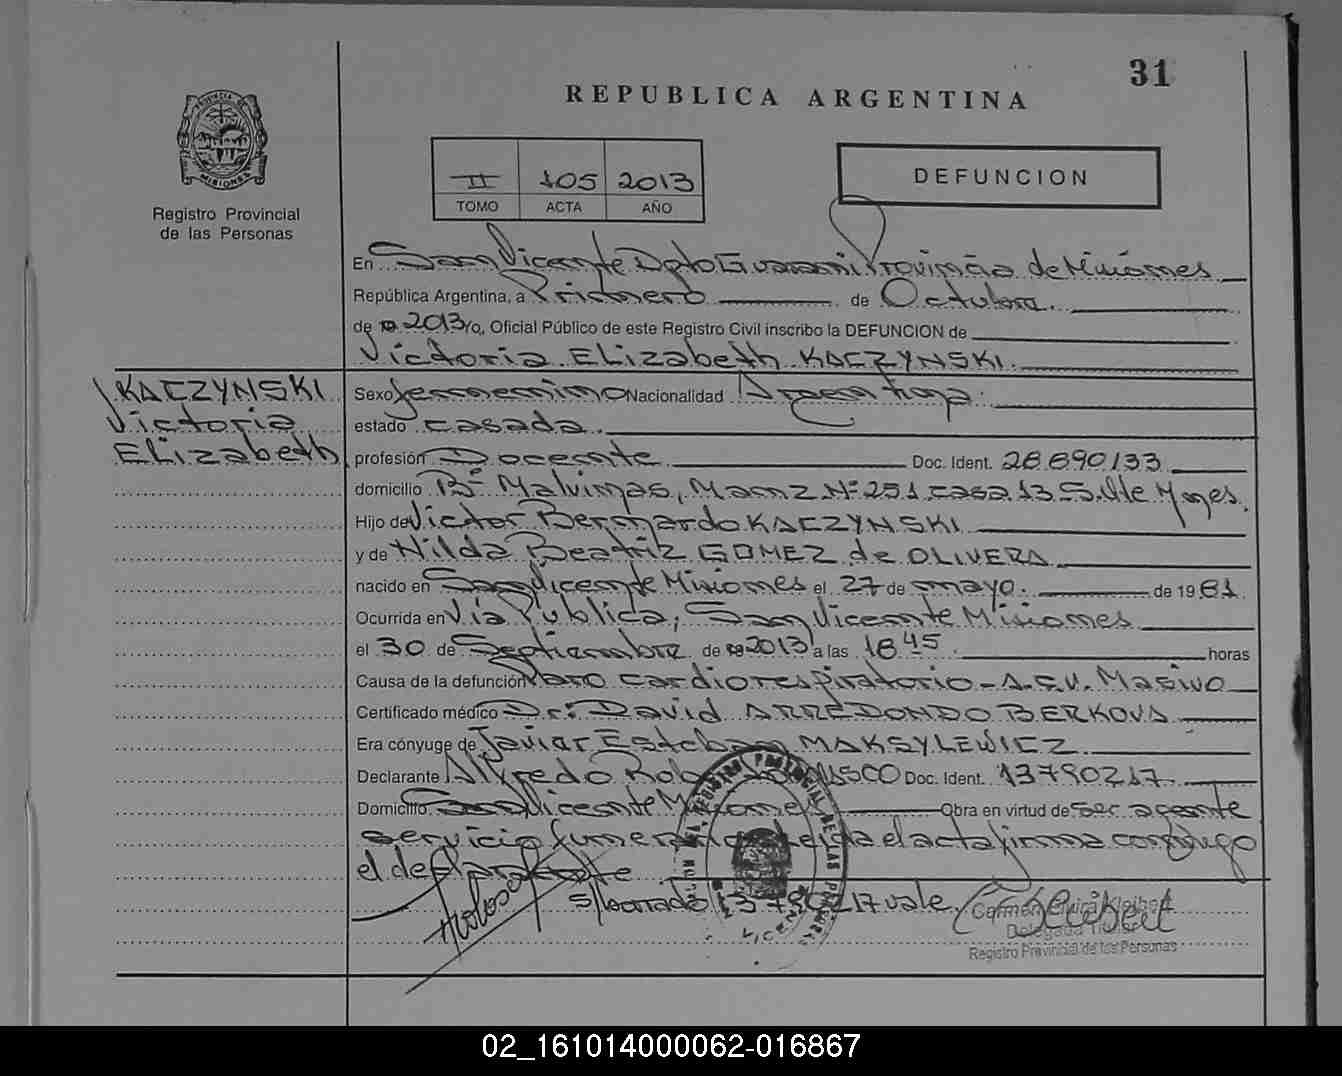 31
REPUBLICA ARGENTINA
PROVINCIA DE
MISIONES
Registro Provincial
de las Personas
II 105 2013
TOMO ACTA AÑO
DEFUNCION
En San Vicente Dpto Guaraní Provincia de Misiones
República Argentina, a Primero de Octubre
de 2013 yo, Oficial Público de este Registro Civil inscribo la DEFUNCION de
Victoria ELizabeth KACZYNSKI.
KACZYNSKI
Victoria
ELizabeth
Sexo femenino Nacionalidad Argentina.
estado casada.
profesión Docente Doc. Ident. 28890133
domicilio Bº Malvinas, Manz Nº 251 casa 13 S.Vte Mnes.
Hijo de Victor Bernardo KACZYNSKI
y de Nilda Beatriz GOMEZ de OLIVERA
nacido en San Vicente Misiones el 27 de mayo. de 1981.
Ocurrida en Vía Publica, San Vicente Misiones
el 30 de Septiembre de 2013 a las 18 45. horas
Causa de la defunción Paro cardiorespiratorio - A.C.V. Masivo
Certificado médico Dr: David ARREDONDO BERKOVA
Era cónyuge de Javier Esteban MAKSYLEWICZ
Declarante Alfredo Doc. Ident. 13790217.
Domicilio San Vicente Misiones Obra en virtud de ser agente
servicio el acta firma conmigo
el declarante
s/borrado 13790217 vale.
Carmen Elvira Kleibert
Delegada Titular
Registro Provincial de las Personas
02_161014000062-016867